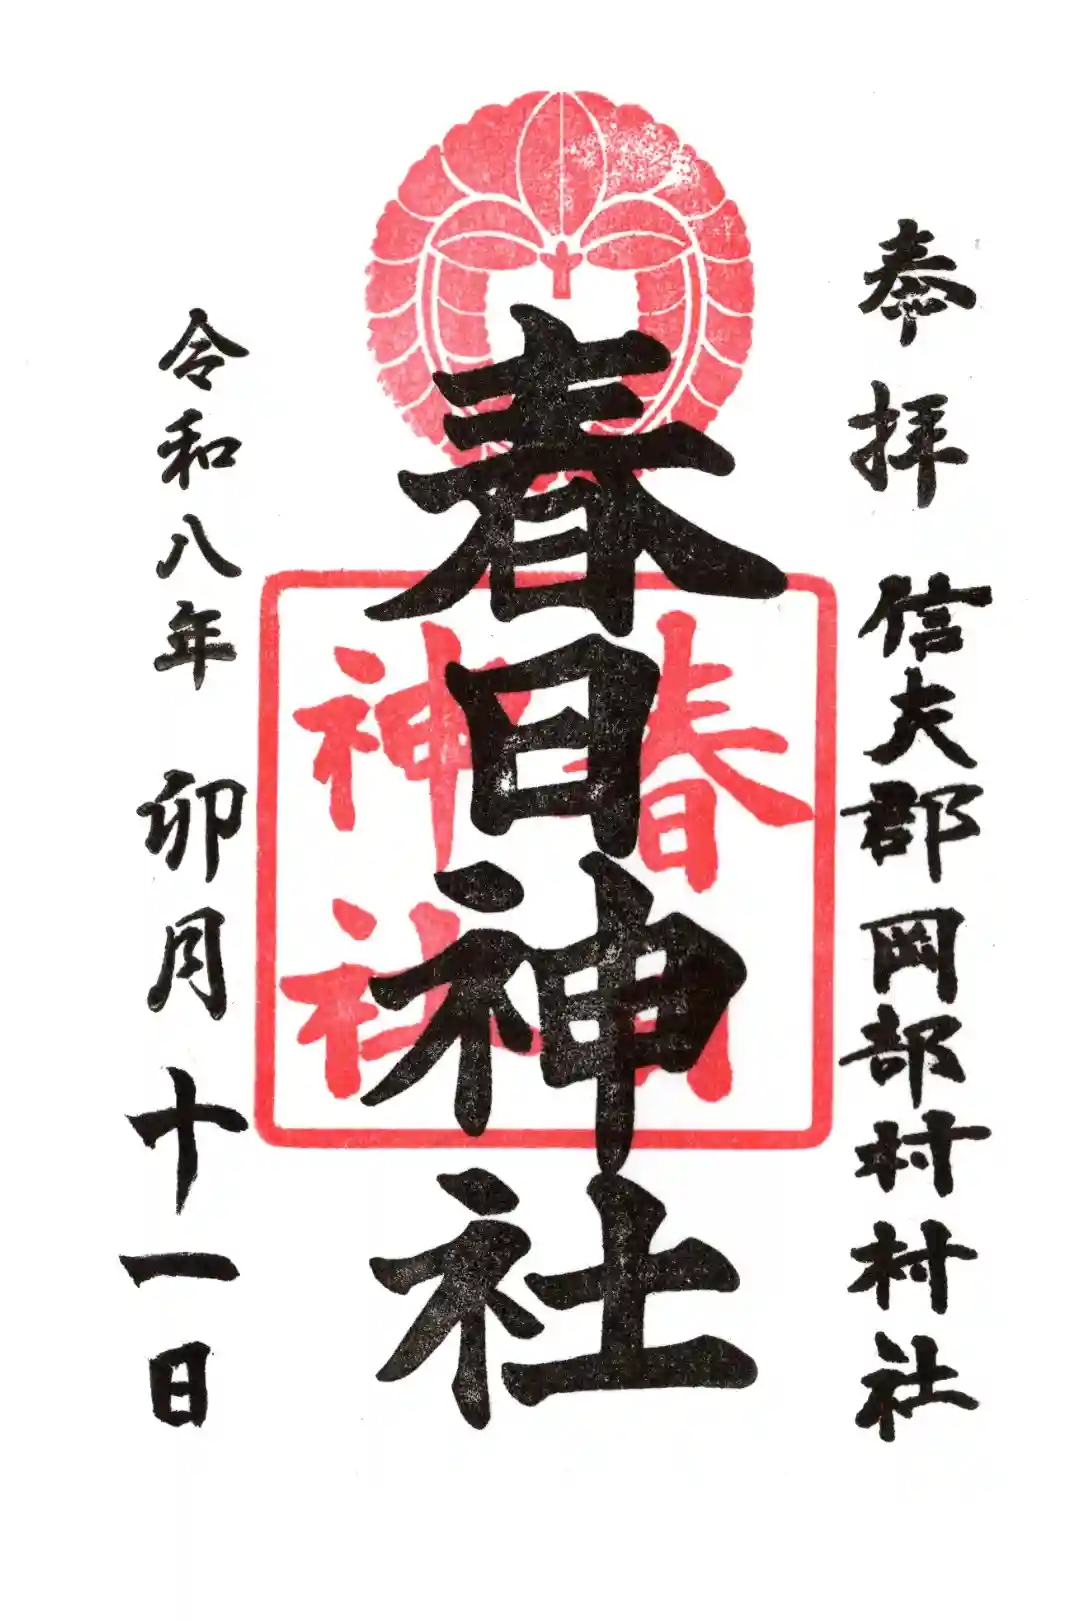 奉拝 信夫郡岡部村村社
春日神社
春日神社
令和八年 卯月十一日